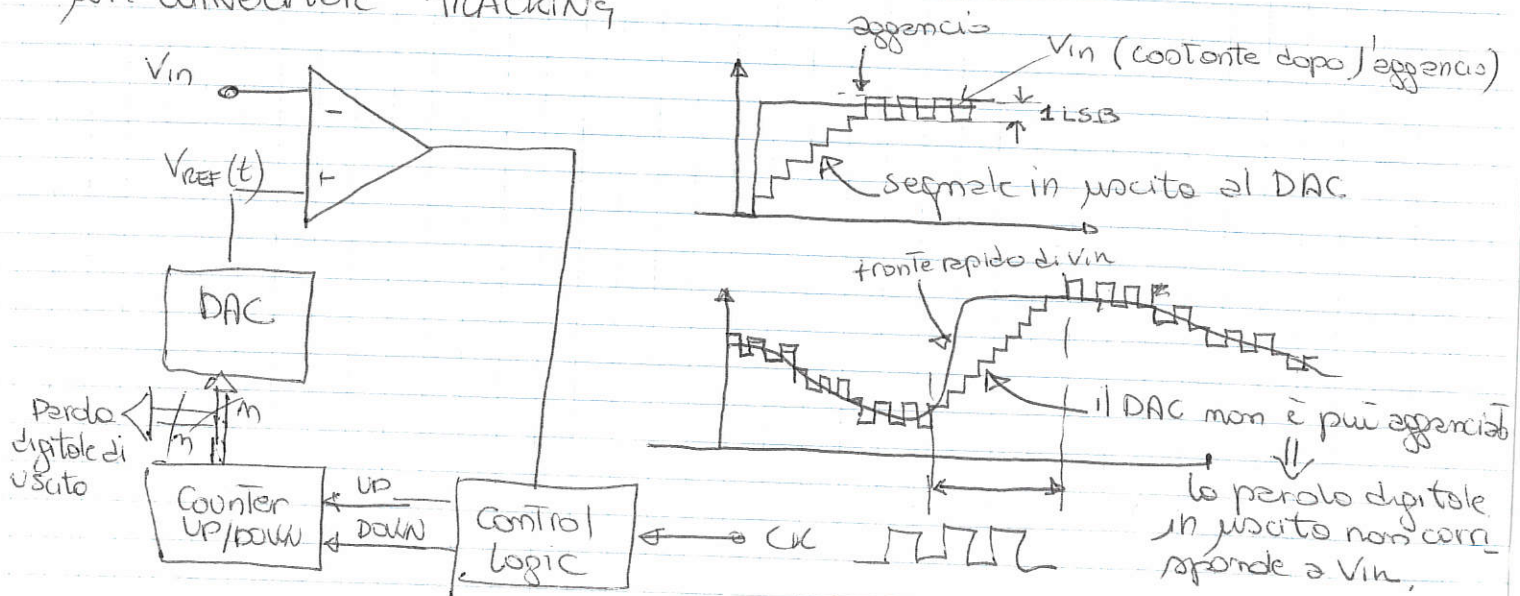 CONVERTITORE TRACKING
Vin
-
VREF(t)
+
DAC
Parola
digitale di
uscita
n
n
Counter
UP/DOWN
UP
DOWN
Control
logic
CK
aggancio
Vin (costante dopo l'aggancio)
1 LSB
segnale in uscita al DAC
fronte rapido di Vin
il DAC non è più agganciato
⇓
la parola digitale
in uscita non corri_
sponde a Vin.